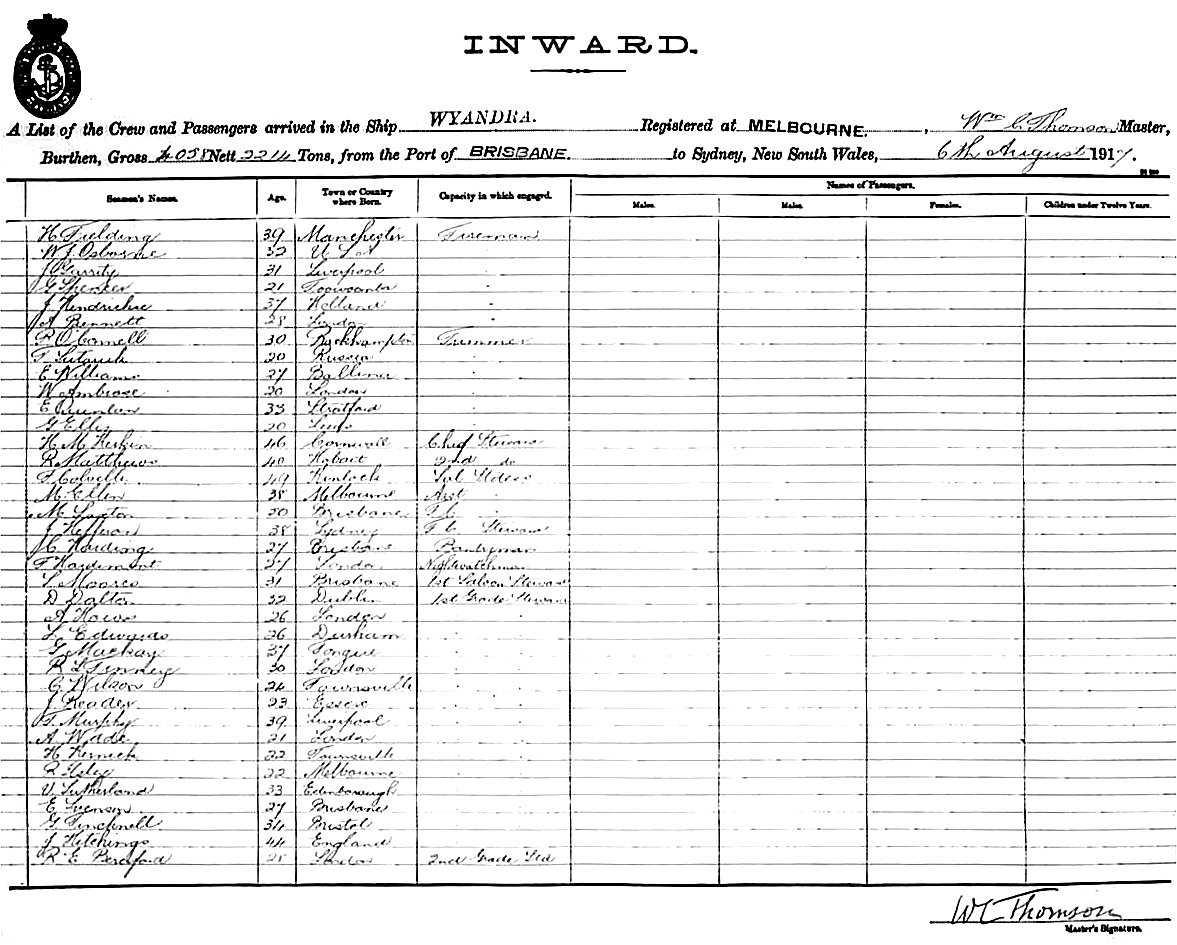 INWARD.
A List of the Crew and Passengers arrived in the Ship WYANDRA. Registered at MELBOURNE. , Wm C Thomson Master,
Burthen, Gross 4058 Nett 2214 Tons, from the Port of BRISBANE. to Sydney, New South Wales, 6th August 1917.
Seamen's Names. Age. Town or Country where Born. Capacity in which engaged. Names of Passengers.
Males. Males. Females. Children under Twelve Years.
H Fielding 39 Manchester Fireman
W J Osborne 32 "
J Garrity 31 Liverpool "
G Spencer 21 Toowoomba "
J Hendrickse 37 Holland "
A Bennett 28 London "
P O'Connell 30 Rockhampton Trimmer
20 Russia "
E Williams 27 Ballina "
W Ambrose 20 London "
E Quinlan 33 Stratford "
G Ellis 20 "
H M 46 Cornwall Chief Steward
R Matthews 40 Hobart 2nd do
F Colville 49 Kinloch
M Ellen 38 Melbourne Asst "
M Saxton Brisbane F C "
J Heffron 38 Sydney F C Steward
C Harding 27 Brisbane Pantryman
F Hardiment 27 London Nightwatchman
S Moores 31 Brisbane 1st Saloon Steward
D Dalton 32 Dublin 1st Grade Steward
A Hows 26 London " "
L Edwards 26 Durham " "
G Mackay 37 Tongue " "
R L Finney 30 London " "
C Wilson 24 Townsville " "
J Reader 23 Essex " "
T Murphy 39 Liverpool " "
A Wade 21 London " "
H Kernick 22 Townsville " "
R 22 Melbourne " "
V Sutherland 33 Edinborough " "
E Svenson 27 Brisbane " "
G Tincknell 34 Bristol " "
J Hitchings 44 England " "
R E Beresford 28 London 2nd Grade Std
W C Thomson
Master's Signature.